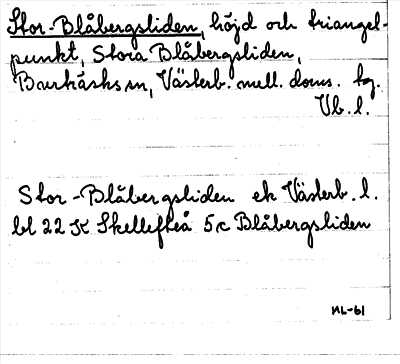 Stor-Blåbergsliden, höjd och triangel-
punkt, Stora Blåbergsliden,
Burträsks sn, Västerb. mell. doms. tg.
Vb. l.
Stor-Blåbergsliden ek Västerb. l.
bl 22 K Skellefteå 5c Blåbergsliden
NL-61